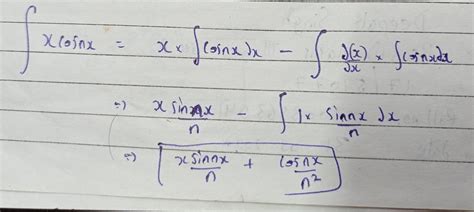 ∫ x cosnx = x × ∫ cosnx dx − ∫ d(x)/dx × ∫ cosnx dx
=) x sinnx/n − ∫ 1× sinnx/n dx
=) x sinnx/n + cosnx/n²